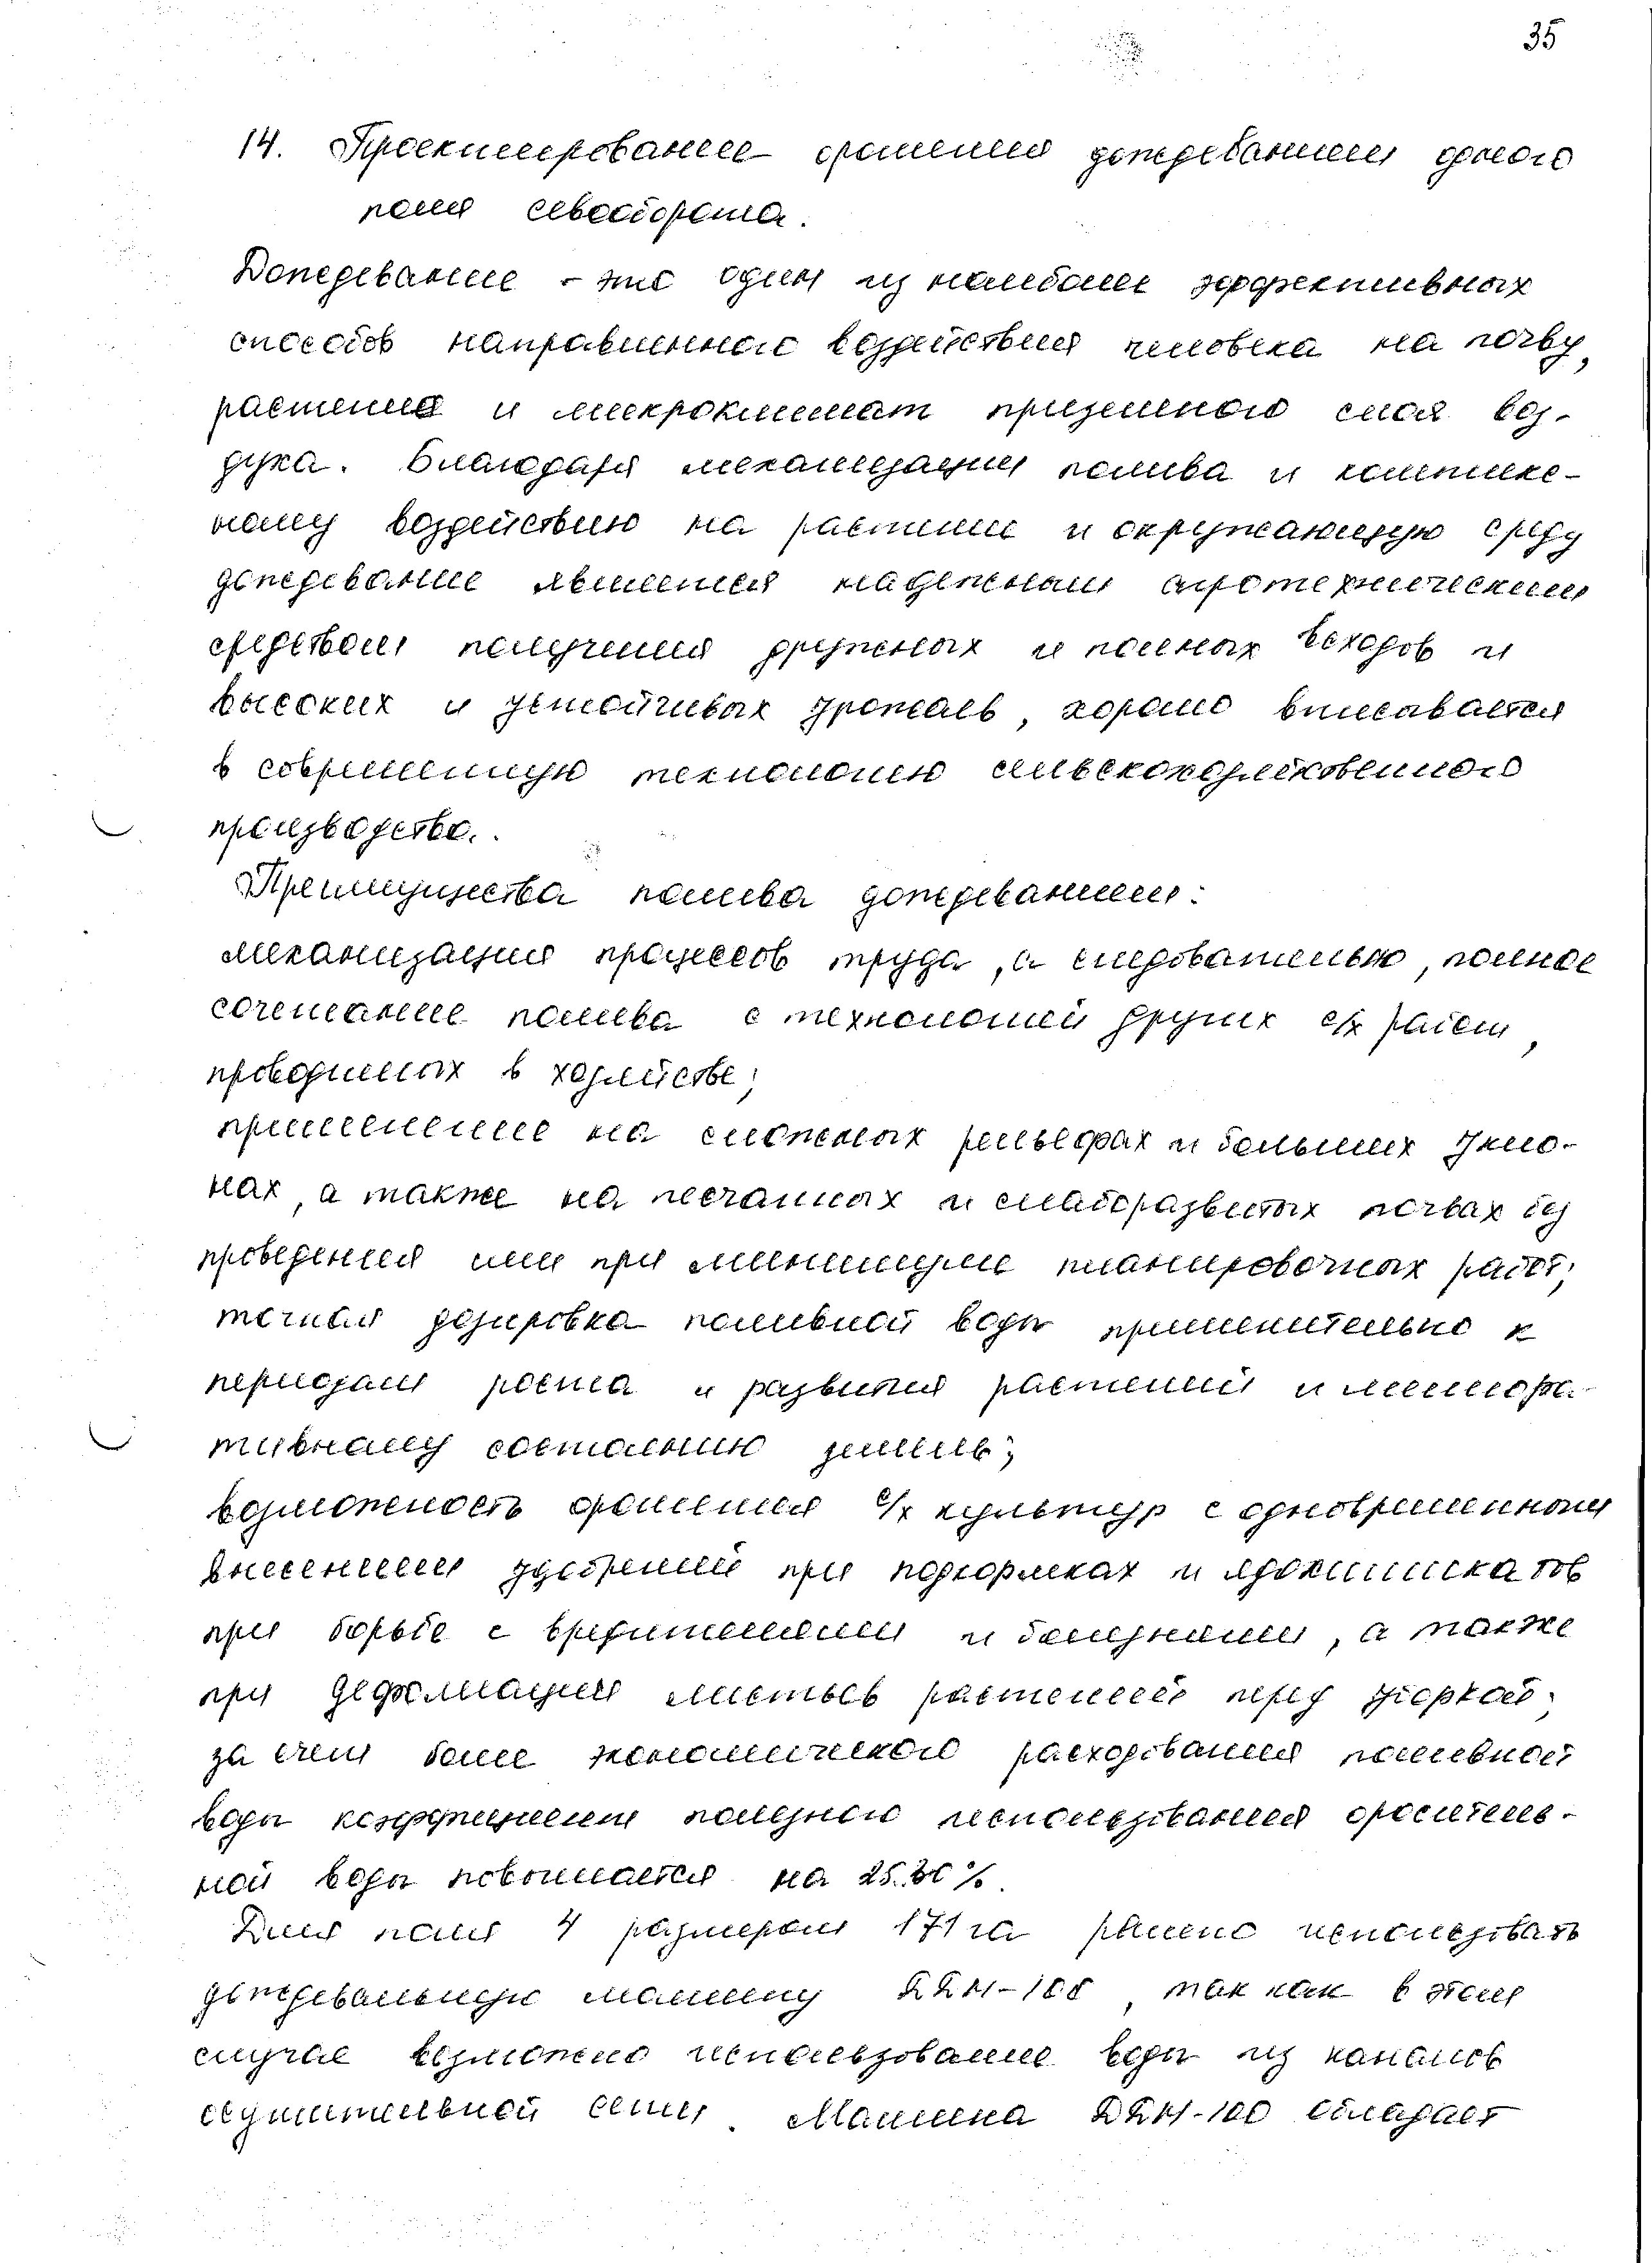 35
14. Проектирование орошения дождеванием одного
поля севооборота.
Дождевание - это один из наиболее эффективных
способов направленного воздействия человека на почву,
растения и микроклимат приземного слоя воз-
духа. Благодаря механизации полива и комплекс-
ному воздействию на растение и окружающую среду
дождевание является надежным агротехническим
средством получения дружных и полных всходов и
высоких и устойчивых урожаев, хорошо вписывается
в современную технологию сельскохозяйственного
производства.
Преимущества полива дождеванием:
механизация процессов труда, а следовательно, полное
сочетание полива с технологией других с/х работ,
проводимых в хозяйстве;
применение на сложных рельефах и больших укло-
нах, а также на песчаных и слаборазвитых почвах без
проведения или при минимуме планировочных работ;
точная дозировка поливной воды применительно к
периодам роста и развития растений и мелиора-
тивному состоянию земель;
возможность орошения с/х культур с одновременным
внесением удобрений при подкормках и ядохимикатов
при борьбе с вредителями и болезнями, а также
при дефолиации листьев растений перед уборкой;
за счет более экономического расходования поливной
воды коэффициент полезного использования ороситель-
ной воды повышается на 25..30%.
Для поля 4 размером 171 га решено использовать
дождевальную машину ДДН-100, так как в этом
случае возможно использование воды из каналов
осушительной сети. Машина ДДН-100 обладает